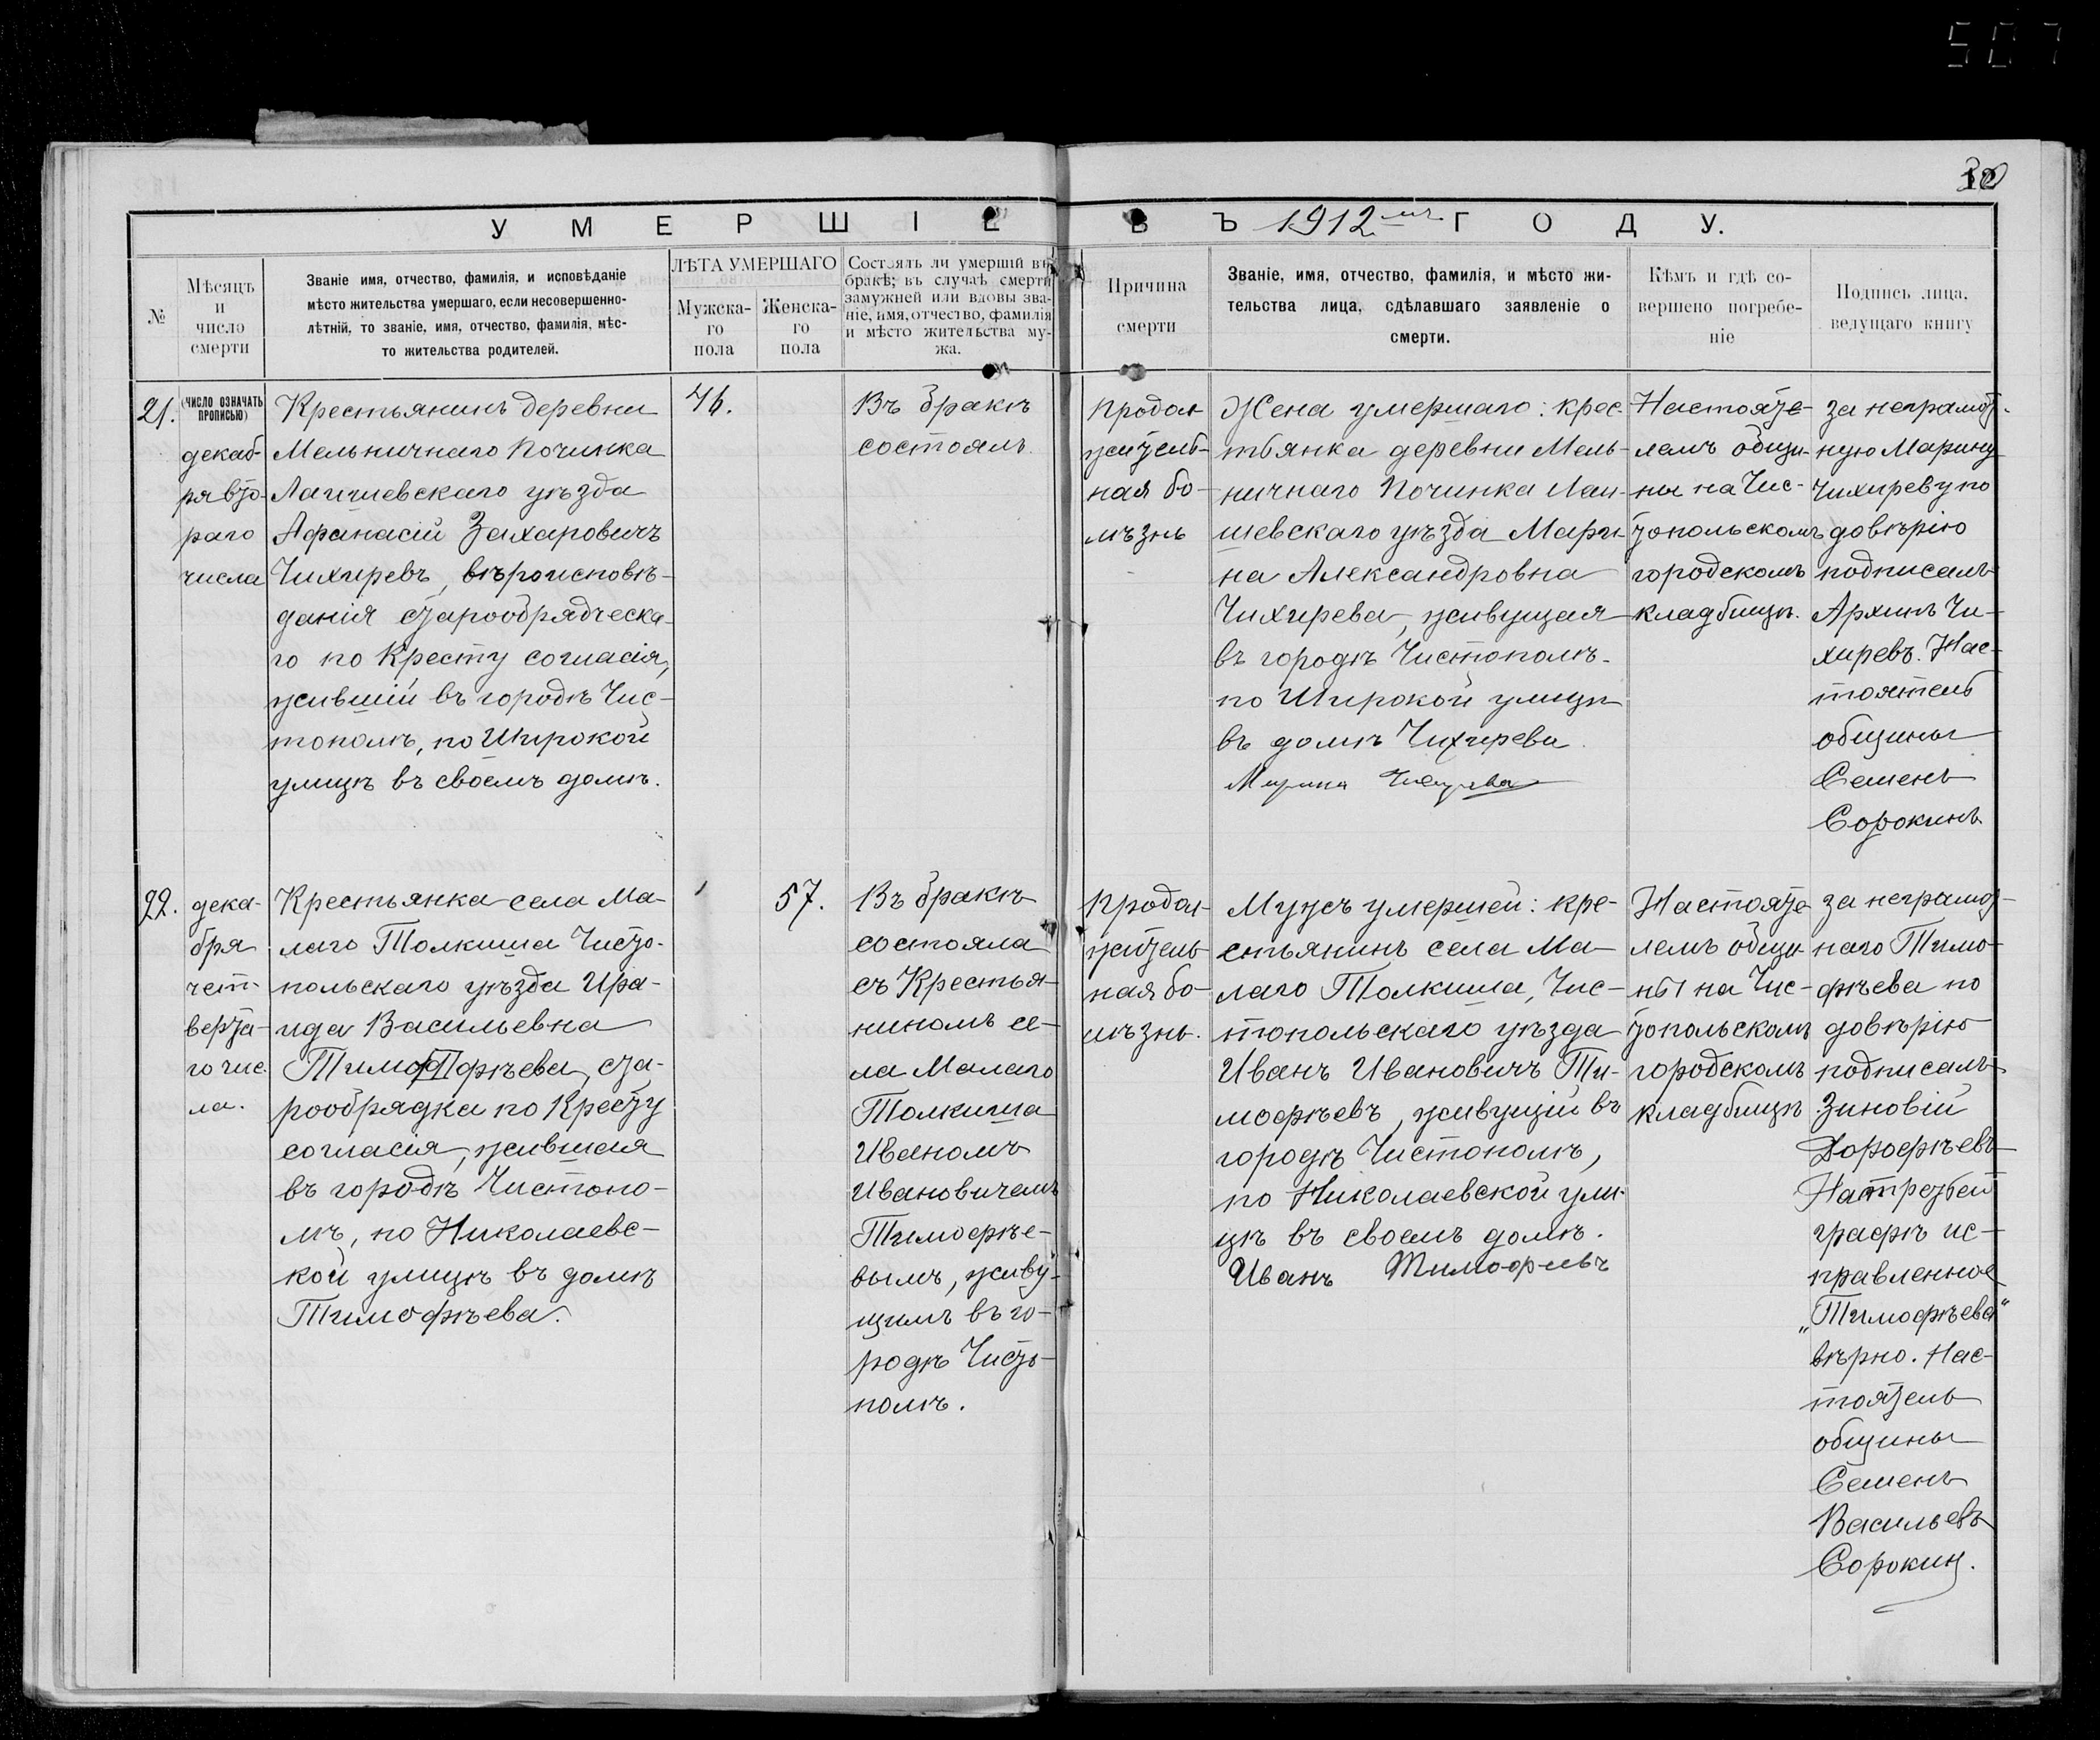 507
30
УМЕРШІЕ
ВЪ 1912-мъ ГОДУ.
№
Мѣсяцъ
и
число
смерти
Званіе имя, отчество, фамилія, и исповѣданіе
мѣсто жительства умершаго, если несовершенно-
лѣтній, то званіе, имя, отчество, фамилія, мѣс-
то жительства родителей.
ЛѢТА УМЕРШАГО
Мужска-
го
пола
Женска-
го
пола
Состоялъ ли умершій въ
бракѣ; въ случаѣ смерти
замужней или вдовы зва-
ніе, имя, отчество, фамилія
и мѣсто жительства му-
жа.
Причина
смерти
Званіе, имя, отчество, фамилія, и мѣсто жи-
тельства лица, сдѣлавшаго заявленіе о
смерти.
Кѣмъ и гдѣ со-
вершено погребе-
ніе
Подпись лица,
ведущаго книгу
21.
(ЧИСЛО ОЗНАЧАТЬ
ПРОПИСЬЮ)
декаб-
ря вто-
раго
числа
Крестьянинъ деревни
Мельничнаго Починка
Лаишевскаго уѣзда
Афанасій Захаровичъ
Чихиревъ, вѣроисповѣ-
данія старообрядческа-
го по Кресту согласія,
жившій въ городѣ Чис-
тополѣ, по Широкой
улицѣ въ своемъ домѣ.
46.
Въ бракѣ
состоялъ.
Продол-
житель-
ная бо-
лѣзнь
Жена умершаго: крес-
тьянка деревни Мель-
ничнаго Починка Лаи-
шевскаго уѣзда Мари-
на Александровна
Чихирева, живущая
въ городѣ Чистополѣ
по Широкой улицѣ
въ домѣ Чихирева.
Марина Чихирева
Настояте-
лемъ общи-
ны на Чис-
топольскомъ
городскомъ
кладбищѣ.
за неграмот-
ную Марину
Чихиреву по
довѣрію
подписалъ
Архипъ Чи-
хиревъ. Нас-
тоятель
общины
Семенъ
Сорокинъ
22.
дека-
бря
чет-
верта-
го чис
ла.
Крестьянка села Ма-
лаго Толкиша Чисто-
польскаго уѣзда Ира-
ида Васильевна
Тимофѣева, ста-
рообрядка по Кресту
согласія, жившая
въ городѣ Чистопо-
лѣ, по Николаевс-
кой улицѣ въ домѣ
Тимофѣева.
57.
Въ бракѣ
состояла
съ Крестья-
ниномъ се-
ла Малаго
Толкиша
Иваномъ
Ивановичемъ
Тимофѣе-
вымъ, живу-
щимъ въ го-
родѣ Чисто-
полѣ.
Продол-
житель-
ная бо-
лѣзнь.
Мужъ умершей: кре-
стьянинъ села Ма-
лаго Толкиша, Чис-
топольскаго уѣзда
Иванъ Ивановичъ Ти-
мофѣевъ, живущій въ
городѣ Чистополѣ,
по Николаевской ули-
цѣ въ своемъ домѣ.
Иванъ Тимофѣевъ
Настояте
лемъ общи-
ны на Чис-
топольскомъ
городскомъ
кладбищѣ
за неграмот-
наго Тимо-
фѣева по
довѣрію
подписалъ
Зиновій
Дорофѣевъ
На третьей
графѣ ис-
правленное
„Тимофѣева"
вѣрно. Нас-
тоятель
общины
Семенъ
Васильевъ
Сорокин.